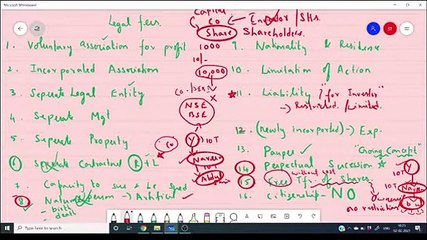 Microsoft Whiteboard
Legal fees.
Capital
Co → Investor / SHs.
Share Shareholders.
1. Voluntary Association for profit 1000
10/-
10,000
2. Incorporated Association
3. Seperate Legal Entity
NSE
BSE
4. Seperate Mgt
5. Seperate Property
Co
Y 10T
Naveen
Abdul
6 Seperate Contractual R + L
7. Capacity to sue & be sued
8. Natural Person → Artificial
birth
death
9. Nationality & Residence
10. Limitation of Action
11. Liability "for Investor"
→ Restricted / Limited.
12. → (Newly incorported) → Exp.
13. Pauper "Going Concept"
14. Perpetual Sucession
without rest
15 Free Tfr of Shares
16. Citizenship - NO
Y 10T
no restriction